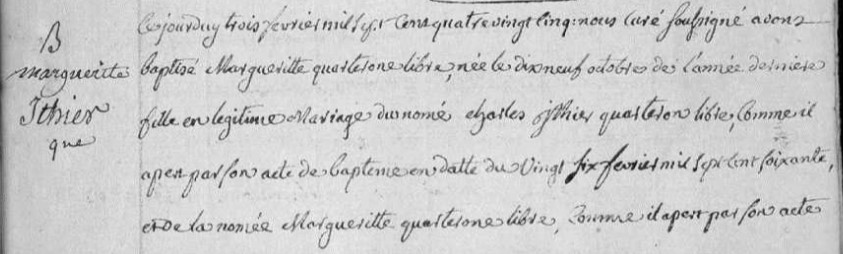 B
margueritte
Ithier
que
Cejourduy trois fevrier mil sept Cens quatre vingt Cinq: nous Curé soussigné avons
baptisé Margueritte quarterone libre, née le dix neuf octobre de l'année derniere
fille en legitime Mariage du nomé charles jthier quarteron libre, Comme il
apert par son acte de bapteme en datte du Vingt six fevrier mil sept Cent soixante,
et de la nomée Margueritte quarterone libre, Comme il apert par son acte